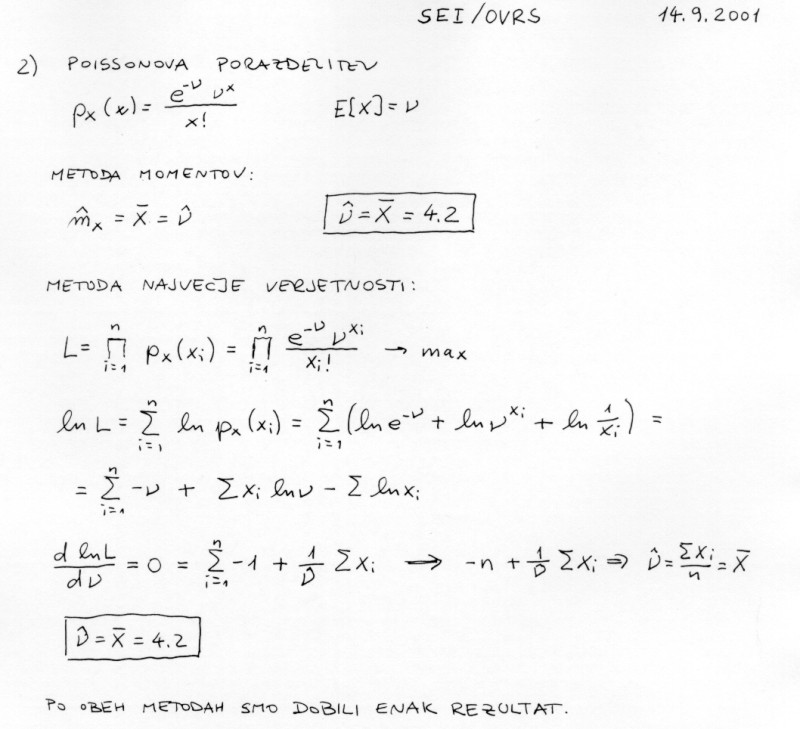 SEI/OVRS 14.9.2001
2) POISSONOVA PORAZDELITEV
pₓ(x) = e^{-ν} ν^x / x! E[X] = ν
METODA MOMENTOV:
m̂ₓ = X̄ = ν̂ ν̂ = X̄ = 4.2
METODA NAJVEČJE VERJETNOSTI:
L = ∏_{i=1}^{n} pₓ(xᵢ) = ∏_{i=1}^{n} e^{-ν} ν^{xᵢ} / xᵢ! → max
ln L = ∑_{i=1}^{n} ln pₓ(xᵢ) = ∑_{i=1}^{n} (ln e^{-ν} + ln ν^{xᵢ} + ln 1/xᵢ) =
= ∑_{i=1}^{n} -ν + ∑ xᵢ ln ν - ∑ ln xᵢ
d ln L / dν = 0 = ∑_{i=1}^{n} -1 + 1/ν̂ ∑ xᵢ → -n + 1/ν̂ ∑ xᵢ ⇒ ν̂ = ∑xᵢ / n = X̄
ν̂ = X̄ = 4.2
PO OBEH METODAH SMO DOBILI ENAK REZULTAT.